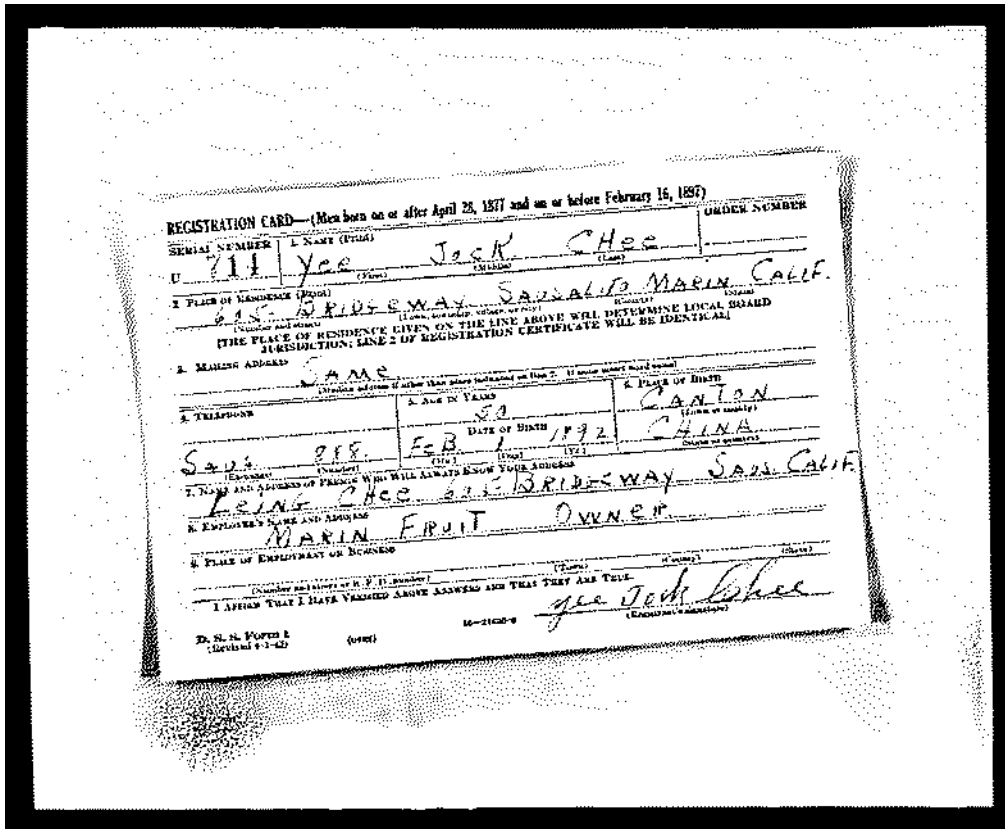 REGISTRATION CARD—(Men born on or after April 28, 1877 and on or before February 16, 1897)
SERIAL NUMBER 1. NAME (Print) ORDER NUMBER
U 711 Yee Jock CHee
(First) (Middle) (Last)
2. PLACE OF RESIDENCE (Print)
605 BRIDGEWAY SAUSALITO MARIN CALIF.
(Number and street) (Town, township, village, or city) (County) (State)
[THE PLACE OF RESIDENCE GIVEN ON THE LINE ABOVE WILL DETERMINE LOCAL BOARD
JURISDICTION; LINE 2 OF REGISTRATION CERTIFICATE WILL BE IDENTICAL]
3. MAILING ADDRESS
SAME
[Mailing address if other than place indicated on line 2. If same insert word same]
4. TELEPHONE 5. AGE IN YEARS 6. PLACE OF BIRTH
50 CANTON
DATE OF BIRTH (Town or county)
Saus 888 FeB 1 1892 CHINA
(Exchange) (Number) (Mo.) (Day) (Yr.) (State or country)
7. NAME AND ADDRESS OF PERSON WHO WILL ALWAYS KNOW YOUR ADDRESS
CHee 605 BRIDGEWAY SAUS. CALIF.
8. EMPLOYER'S NAME AND ADDRESS
MARIN FRUIT OWNER
9. PLACE OF EMPLOYMENT OR BUSINESS
(Number and street or R. F. D. number) (Town) (County) (State)
I AFFIRM THAT I HAVE VERIFIED ABOVE ANSWERS AND THAT THEY ARE TRUE.
Yee Jock Chee
D. S. S. Form 1 (over) (Registrant's signature)
(Revised 4-1-42)